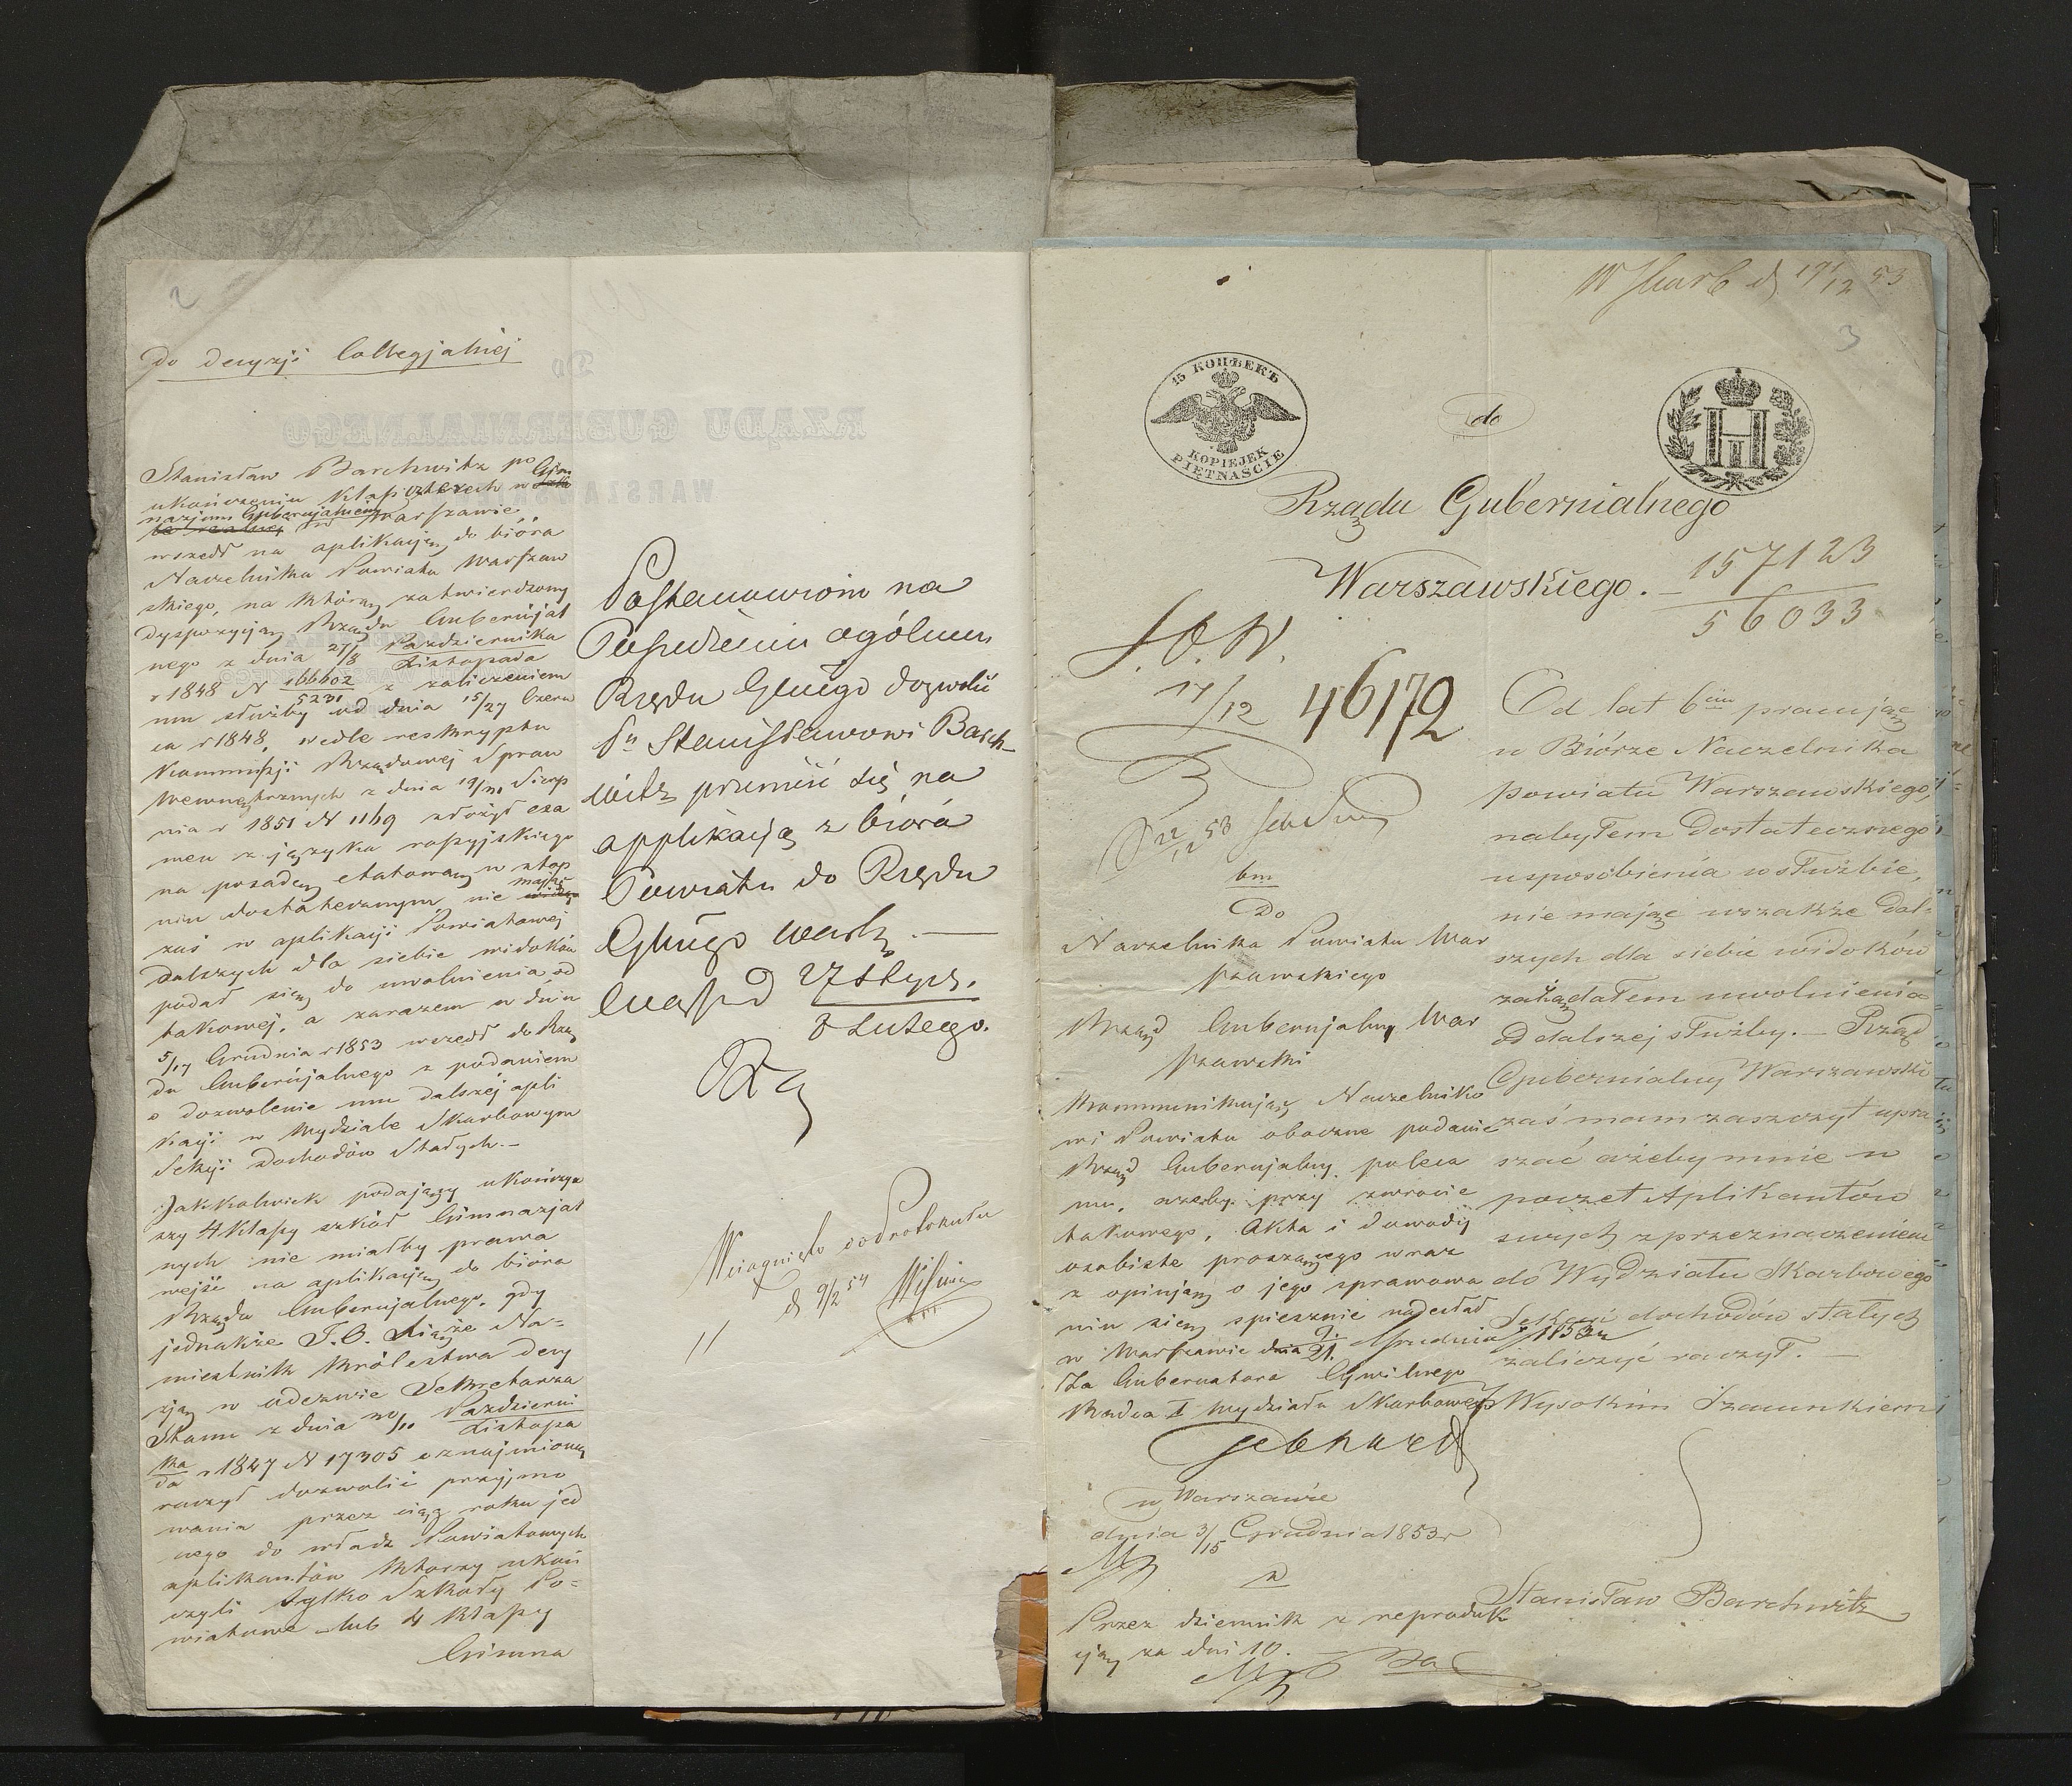 2
Do decyzji Collegjalnéj
Stanisław Barchwitz po
ukończeniu klass czterech w Gim
nazjum Gubernjalnem w Warszawie
wszedł na aplikacją do bióra
Naczelnika Powiatu Warszaw
skiego, na którą zatwierdzony
dyspozycją Rządu Gubernjal
nego z dnia 27/8 Października/Listopada
r 1848 N 166602/5231 z zaliczeniem
mu służby od dnia 15/27 Czerw
ca r 1848, wedle reskryptu
Kommissji Rządowéj Spraw
Wewnętrznych z dnia 19/31 Sierp
nia r 1851 N 1169 złożył exa
men z języka rossyjskiego
na posadę etatową w stop
niu dostatecznym, nie mając
zaś w aplikacji Powiatowéj
dalszych dla siebie widoków
podał się do uwolnienia od
takowéj, a zarazem w dniu
5/17 Grudnia r 1853 wszedł do Rzą
du Gubernjalnego z podaniem
o dozwolenie mu dalszéj apli
kacji w Wydziale Skarbowym
Sekcji Dochodów Stałych.—
Jakkolwiek podający ukończyw
szy 4 klassy szkół Gimnazjal
nych nie miałby prawa
wejść na aplikacją do bióra
Rządu Gubernjalnego, gdy
jednakże J.O. Xiąże Na=
miestnik Królestwa decy
zją w odezwie Sekretarza
Stanu z dnia 29/10 Październi/Listopa
ka/da r 1847 N 17305 oznajmioną
raczył dozwolić przyjmo
wania przez ciąg roku jed
nego do władz Powiatowych
aplikantów którzy ukoń
czyli tylko Szkoły Po=
wiatowe lub 4 klassy
Gimna
Postanowiono na
Posiedzeniu ogólnem
Rządu Gbnego dozwolić
Pn Stanisławowi Barch-
witz przenieść się na
applikacją z bióra
Powiatu do Rządu
Gbnego Warsz.—
Warsz d 27 Stycz./8 Lutego.
Wciągnięto do Protokółu
d 9/2 54
11
W Skarb d 19/12 53
3
15 КОПѢЕКЪ
KOPIEJEK PIĘTNAŚCIE
do
Rządu Gubernialnego
Warszawskiego.—
157123
56033
S.O.W.
17/12 46172
22/12 53
bm
Do
Naczelnika Powiatu War
szawskiego
Rząd Gubernjalny War
szawski
Kommunikując Naczelniko
wi Powiatu oboczne podanie
Rząd Gubernjalny poleca
mu, ażeby przy zwrocie
takowego, Akta i dowody
osobiste proszącego wraz
z opinją o jego sprawowa
niu się spiesznie nadesłał
w Warszawie dnia 9/21 Grudnia 1853 r
Za Gubernatora Cywilnego
Radca I Wydziału Skarbowego
Gebhardt
w Warszawie
dnia 3/15 Grudnia 1853 r
Przez dziennik z reproduk
cją za dni 10.
Od lat 6ciu pracując
w Biórze Naczelnika
Powiatu Warszawskiego,
nabyłem dostatecznego
usposobienia w służbie,
nie mając wszakże dal-
szych dla siebie widoków
zażądałem uwolnienia
od dalszej służby.— Rząd
Gubernialny Warszawski
zaś mam zaszczyt upra
szać ażeby mnie w
poczet Aplikantów
swych z przeznaczeniem
do Wydziału Skarbowego
Sekcii dochodów stałych
zaliczyć raczył.—
Z Wysokim Szacunkiem
Stanisław Barchwitz